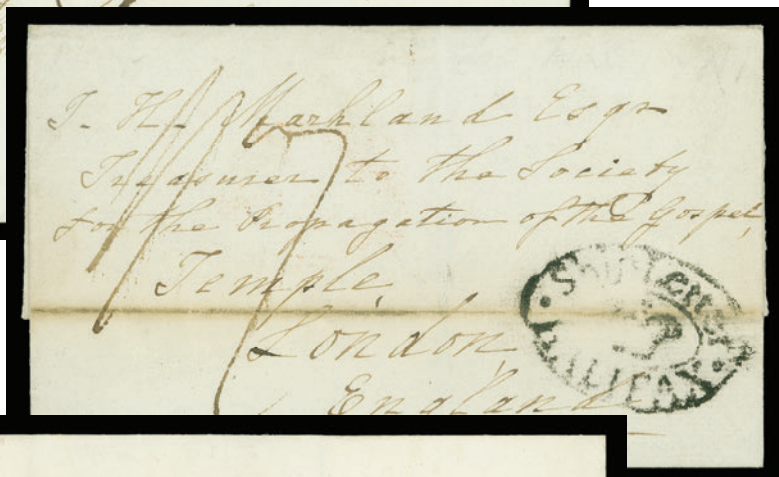 J. H. Markland Esqr
Treasurer to the Society
for the Propagation of the Gospel,
Temple,
London,
England
SHIP LETTER
HALIFAX